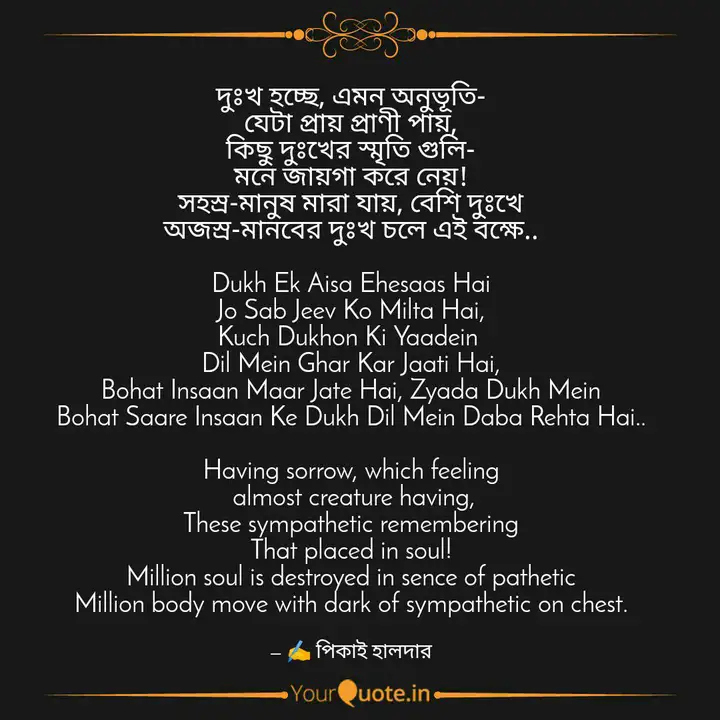 দুঃখ হচ্ছে, এমন অনুভূতি-
যেটা প্রায় প্রাণী পায়,
কিছু দুঃখের স্মৃতি গুলি-
মনে জায়গা করে নেয়!
সহস্র-মানুষ মারা যায়, বেশি দুঃখে
অজস্র-মানবের দুঃখ চলে এই বক্ষে..
Dukh Ek Aisa Ehesaas Hai
Jo Sab Jeev Ko Milta Hai,
Kuch Dukhon Ki Yaadein
Dil Mein Ghar Kar Jaati Hai,
Bohat Insaan Maar Jate Hai, Zyada Dukh Mein
Bohat Saare Insaan Ke Dukh Dil Mein Daba Rehta Hai..
Having sorrow, which feeling
almost creature having,
These sympathetic remembering
That placed in soul!
Million soul is destroyed in sence of pathetic
Million body move with dark of sympathetic on chest.
– ✍️ পিকাই হালদার
YourQuote.in